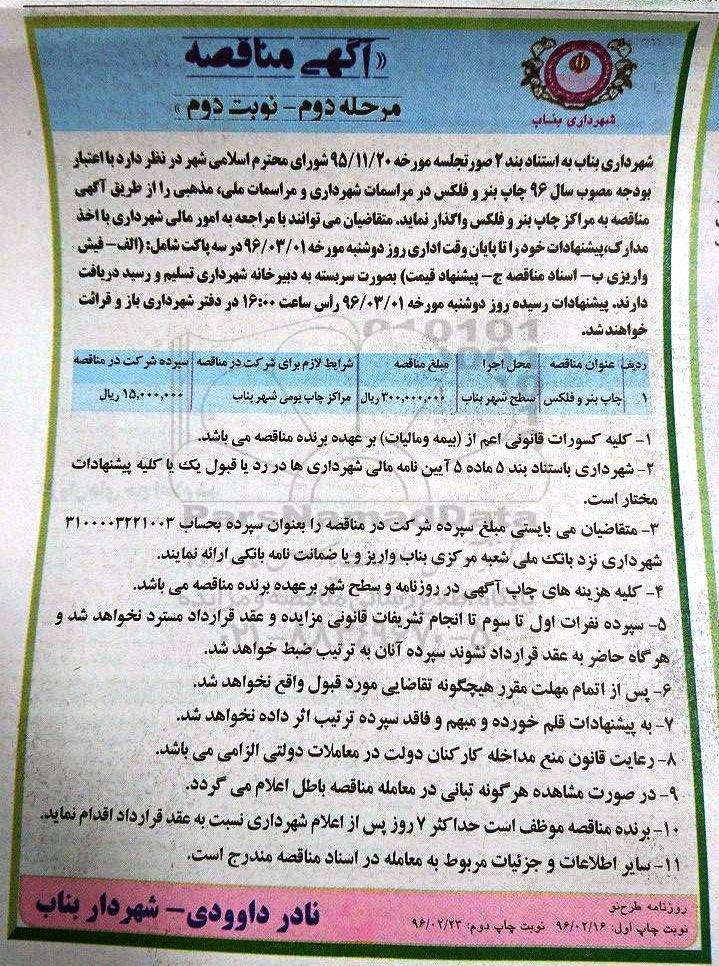 « آگهی مناقصه
مرحله دوم - نوبت دوم »
شهرداری بناب
شهرداری بناب به استناد بند ۲ صورتجلسه مورخه ۹۵/۱۱/۲۰ شورای محترم اسلامی شهر در نظر دارد با اعتبار
بودجه مصوب سال ۹۶ چاپ بنر و فلکس در مراسمات شهرداری و مراسمات ملی، مذهبی را از طریق آگهی
مناقصه به مراکز چاپ بنر و فلکس واگذار نماید. متقاضیان می توانند با مراجعه به امور مالی شهرداری با اخذ
مدارک، پیشنهادات خود را تا پایان وقت اداری روز دوشنبه مورخه ۹۶/۰۳/۰۱ در سه پاکت شامل: (الف- فیش
واریزی ب- اسناد مناقصه ج- پیشنهاد قیمت) بصورت سربسته به دبیرخانه شهرداری تسلیم و رسید دریافت
دارند. پیشنهادات رسیده روز دوشنبه مورخه ۹۶/۰۳/۰۱ رأس ساعت ۱۶:۰۰ در دفتر شهرداری باز و قرائت
خواهند شد.
ردیف عنوان مناقصه محل اجرا مبلغ مناقصه شرایط لازم برای شرکت در مناقصه سپرده شرکت در مناقصه
۱ چاپ بنر و فلکس سطح شهر بناب ۳۰۰,۰۰۰,۰۰۰ ریال مراکز چاپ بومی شهر بناب ۱۵,۰۰۰,۰۰۰ ریال
۱- کلیه کسورات قانونی اعم از (بیمه ومالیات) بر عهده برنده مناقصه می باشد.
۲- شهرداری باستناد بند ۵ ماده ۵ آیین نامه مالی شهرداری ها در رد یا قبول یک یا کلیه پیشنهادات
مختار است.
ParsNamadData
۳- متقاضیان می بایستی مبلغ سپرده شرکت در مناقصه را بعنوان سپرده بحساب ۳۱۰۰۰۰۳۲۲۱۰۰۳
شهرداری نزد بانک ملی شعبه مرکزی بناب واریز و یا ضمانت نامه بانکی ارائه نمایند.
۴- کلیه هزینه های چاپ آگهی در روزنامه و سطح شهر برعهده برنده مناقصه می باشد.
۵- سپرده نفرات اول تا سوم تا انجام تشریفات قانونی مزایده و عقد قرارداد مسترد نخواهد شد و
هرگاه حاضر به عقد قرارداد نشوند سپرده آنان به ترتیب ضبط خواهد شد.
۶- پس از اتمام مهلت مقرر هیچگونه تقاضایی مورد قبول واقع نخواهد شد.
۷- به پیشنهادات قلم خورده و مبهم و فاقد سپرده ترتیب اثر داده نخواهد شد.
۸- رعایت قانون منع مداخله کارکنان دولت در معاملات دولتی الزامی می باشد.
۹- در صورت مشاهده هرگونه تبانی در معامله مناقصه باطل اعلام می گردد.
۱۰- برنده مناقصه موظف است حداکثر ۷ روز پس از اعلام شهرداری نسبت به عقد قرارداد اقدام نماید.
۱۱- سایر اطلاعات و جزئیات مربوط به معامله در اسناد مناقصه مندرج است.
روزنامه طرح‌نو
نوبت چاپ اول: ۹۶/۰۲/۱۶ نوبت چاپ دوم: ۹۶/۰۲/۲۳
نادر داوودی - شهردار بناب